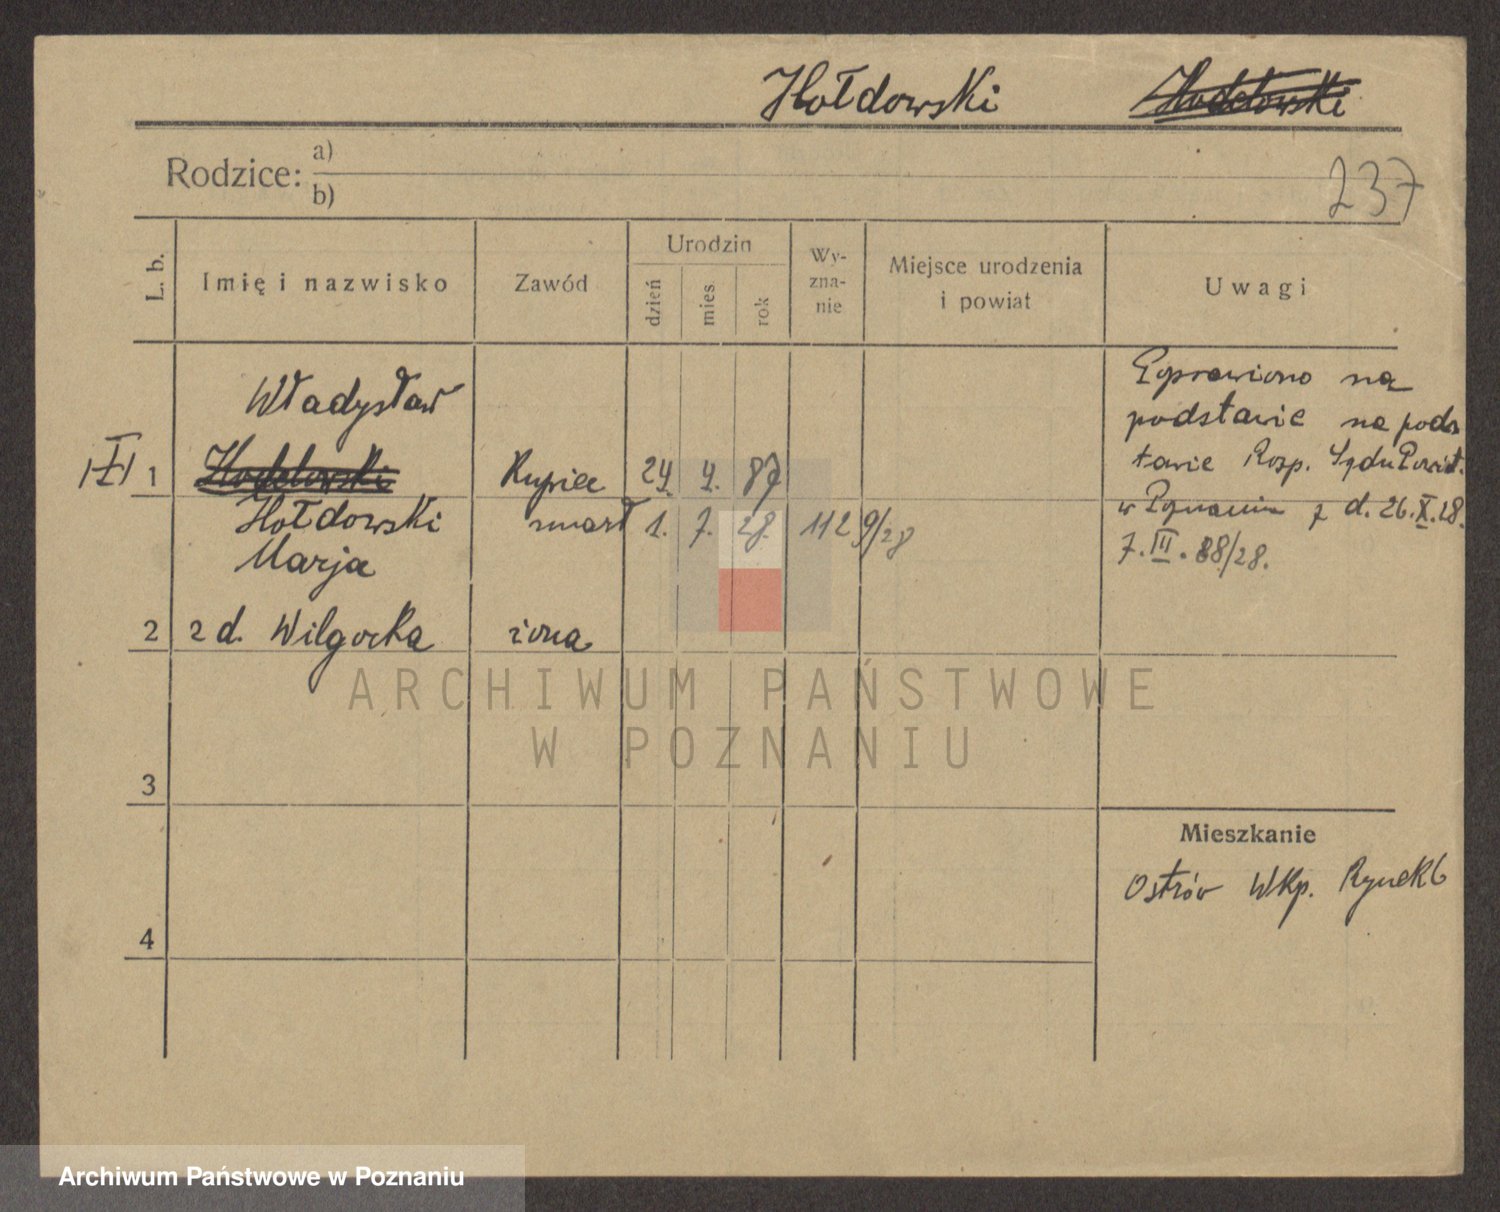 Hołdowski Hodołowski
Rodzice: a)
b)
237
L. b. Imię i nazwisko Zawód Urodzin dzień mies. rok Wy-zna-nie Miejsce urodzenia i powiat Uwagi
Władysław
1 Kupiec 24 4. 87
Hołdowski zmarł 1. 7. 28. 112 9/28
Marja
2 z d. Wilgocka żona
Poprawiono na
podstawie na pods
tawie Rozp. Sądu Powiat.
w Poznaniu z d. 26.X.28.
7.III.88/28.
3
4
Mieszkanie
Ostrów Wkp. Rynek 6
ARCHIWUM PAŃSTWOWE
W POZNANIU
Archiwum Państwowe w Poznaniu